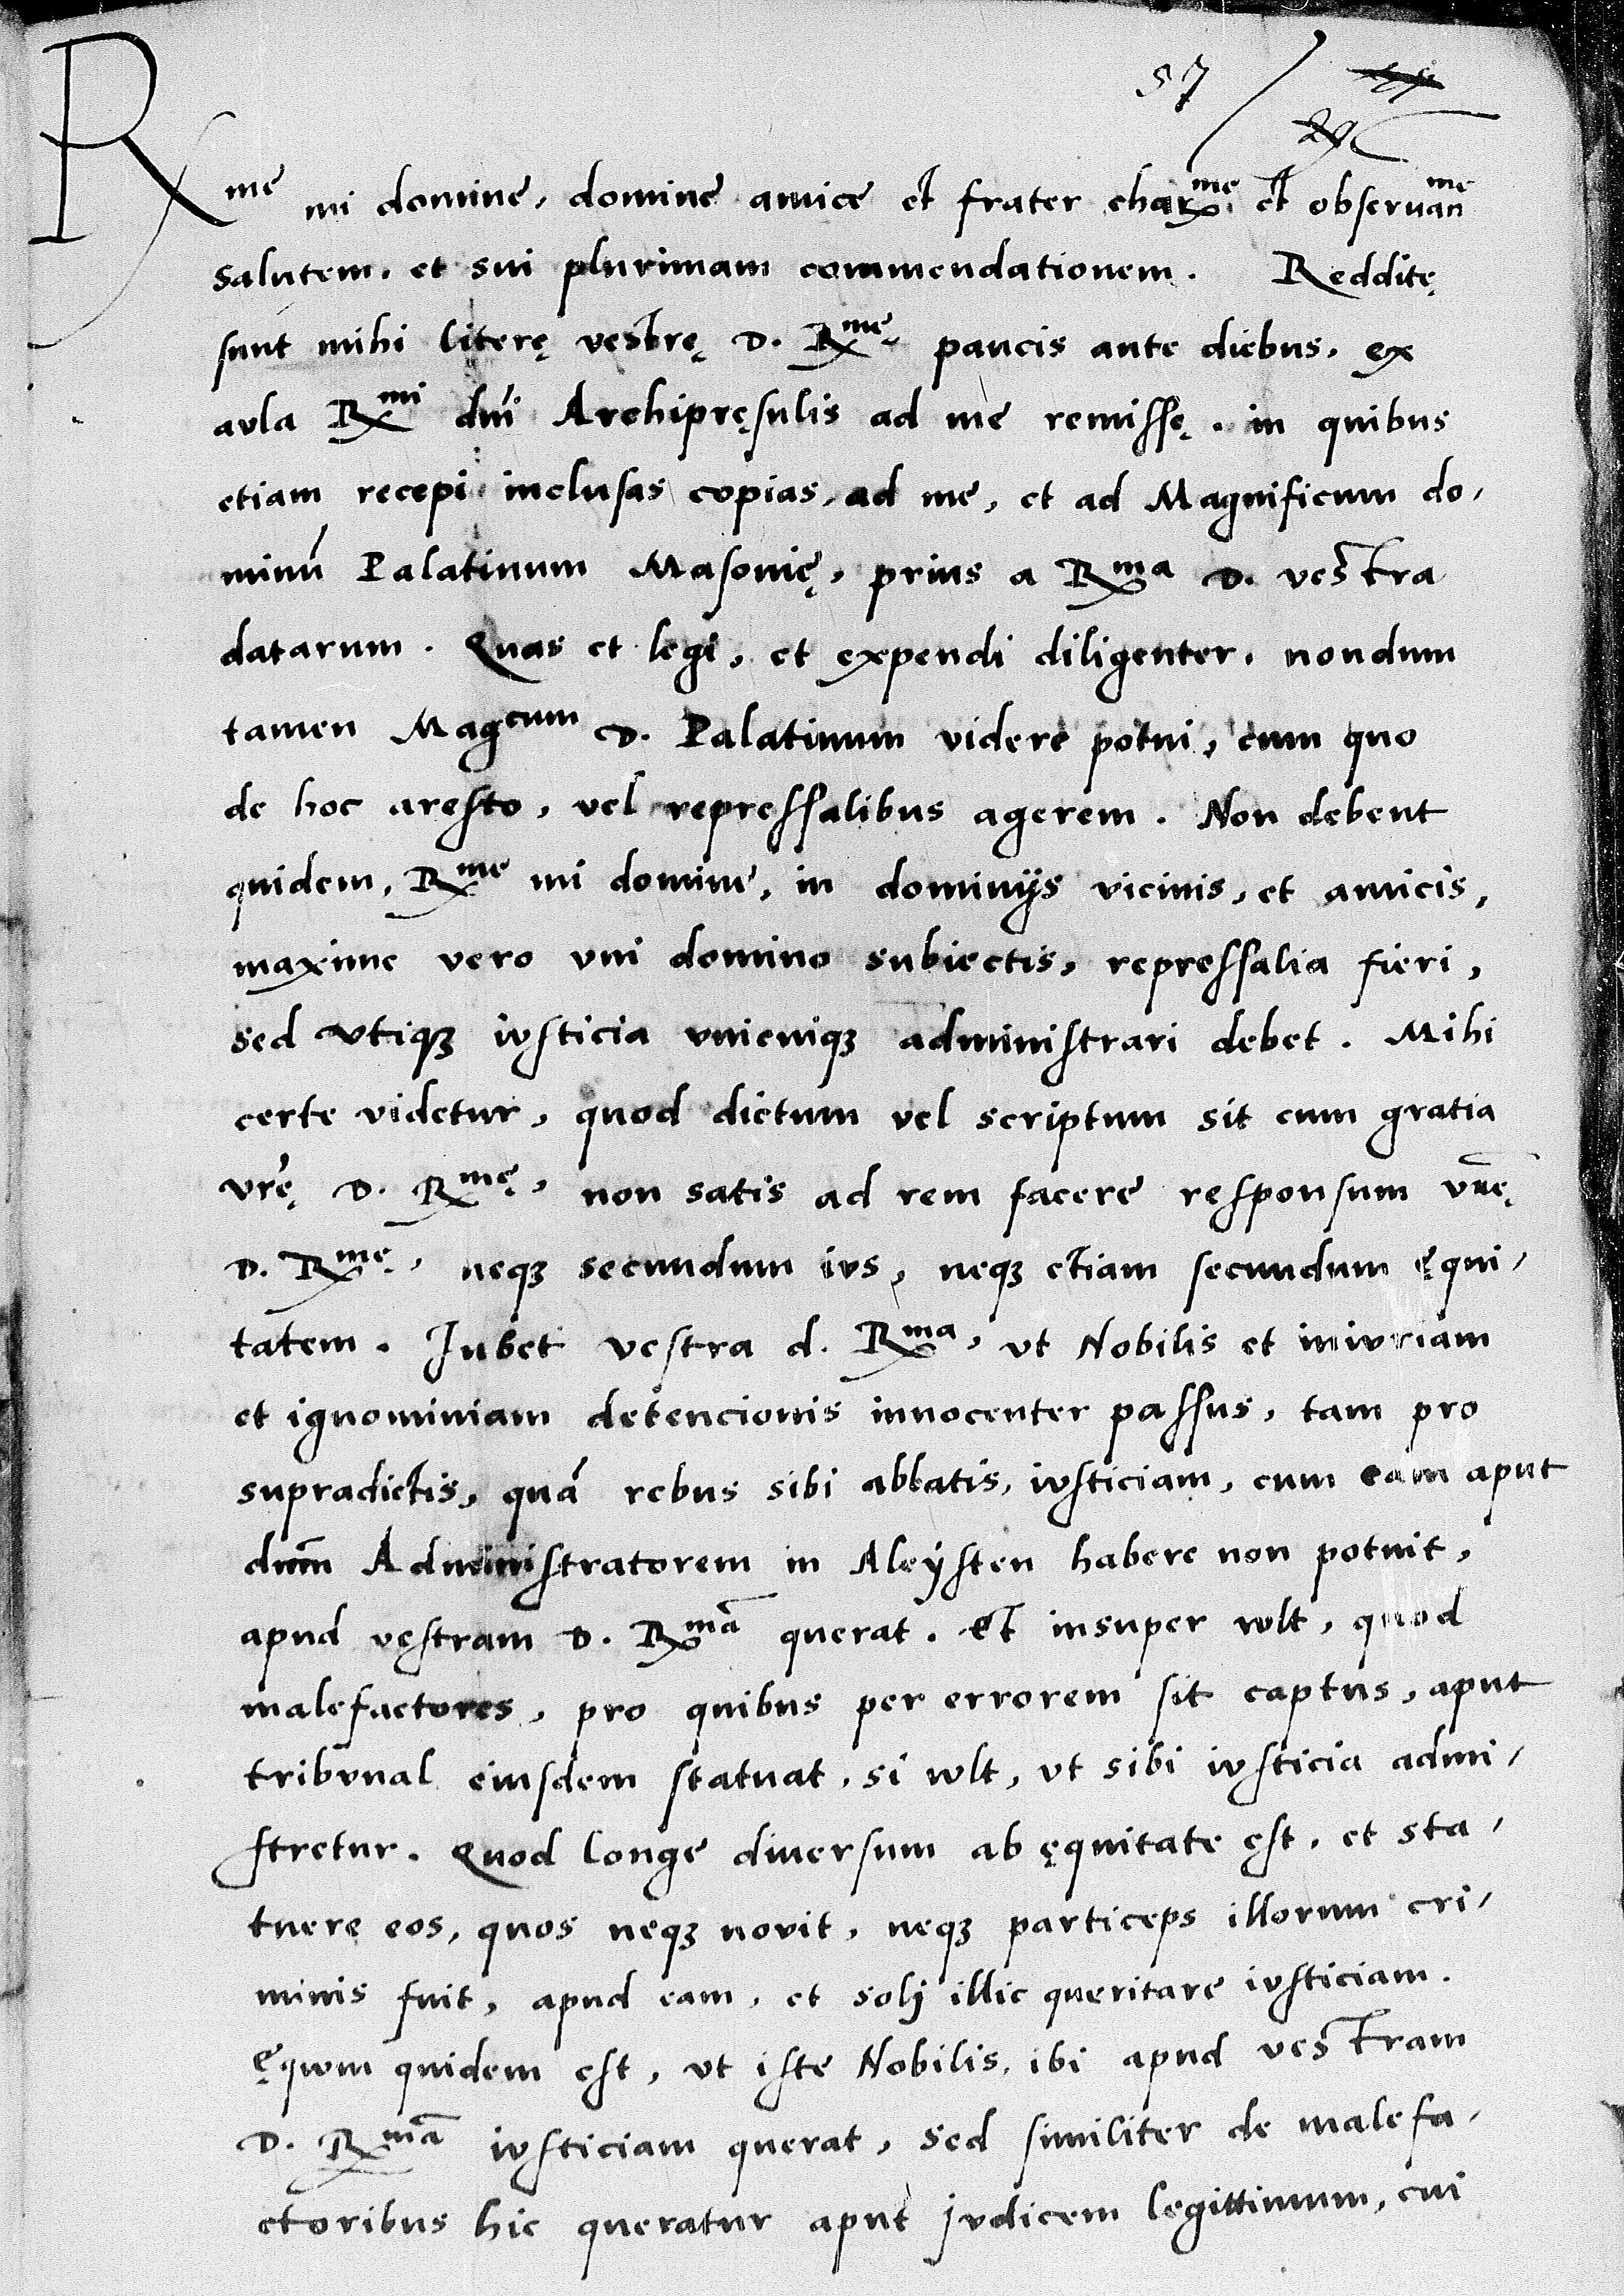 57
29
Rme mi domine, domine amice et frater charme et obseruanme
salutem, et sui plurimam commendationem. Redditę
sunt mihi literę vestrę D. Rmę paucis ante diebus, ex
aula Rmi dni Archipręsulis ad me remissę. in quibus
etiam recepi inclusas copias, ad me, et ad Magnificum do,
minu Palatinum Masonię, prius a Rma D. vestra
datarum. Quas et legi, et expendi diligenter, nondum
tamen Magcum D. Palatinum videre potui, cum quo
de hoc aresto, vel repressalibus agerem. Non debent
quidem, Rme mi domine, in dominijs vicinis, et amicis,
maxime vero vni domino subiectis, repressalia fieri,
sed vtiqꝫ iusticia vnicuiqꝫ administrari debet. Mihi
certe videtur, quod dictum vel scriptum sit cum gratia
vrę D. Rmę, non satis ad rem facere responsum vrę
D. Rmę, neqꝫ secundum ius, neqꝫ etiam secundum ęqui,
tatem. Iubet vestra d. Rma, vt Nobilis et iniuriam
et ignominiam detencionis innocenter passus, tam pro
supradictis, quā rebus sibi ablatis, iusticiam, cum eam aput
dnm Administratorem in Aleÿsten habere non potuit,
apud vestram D. Rmā querat. Et insuper wlt, quod
malefactores, pro quibus per errorem sit captus, aput
tribunal eiusdem statuat, si wlt, vt sibi iusticia admi,
stretur. Quod longe diuersum ab ęquitate est, et sta,
tuere eos, quos neqꝫ novit, neqꝫ particeps illorum cri,
minis fuit, apud eam, et solj illic queritare iusticiam.
ęqwm quidem est, vt iste Nobilis, ibi apud vestram
D. Rmā iusticiam querat, sed similiter de malefa,
ctoribus hic queratur aput judicem legittimum, cui